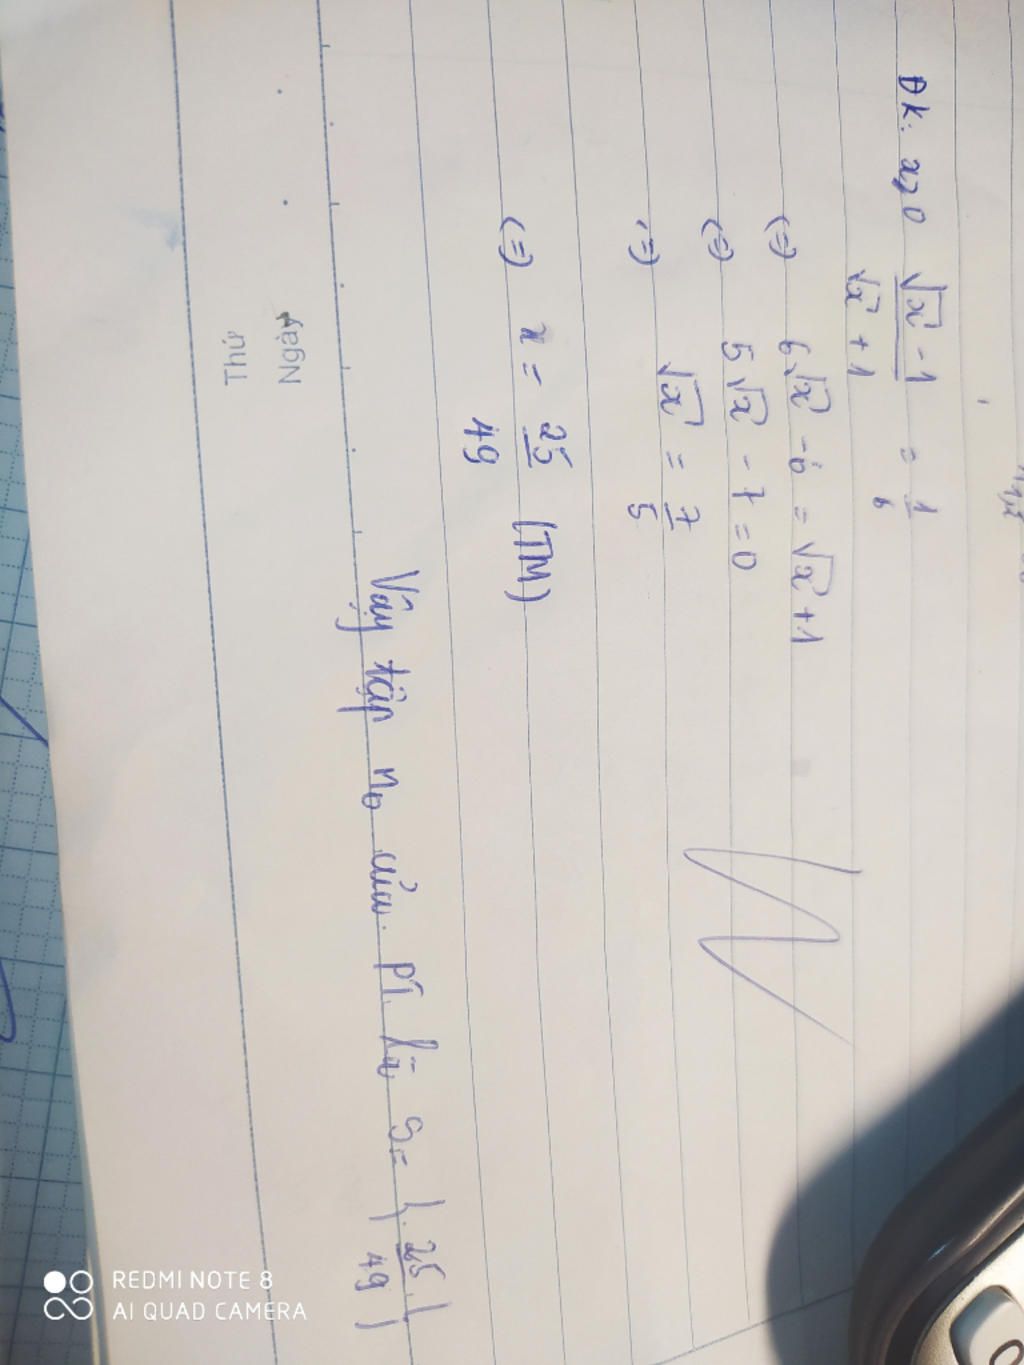 ĐK: x ≥ 0 √x - 1 / √x + 1 = 1/6
(=) 6√x - 6 = √x + 1
(=) 5√x - 7 = 0
(=) √x = 7/5
(=) x = 25/49 (TM)
Vậy tập n₀ của PT là S = { 25/49 }
Ngày
Thứ
REDMI NOTE 8
AI QUAD CAMERA